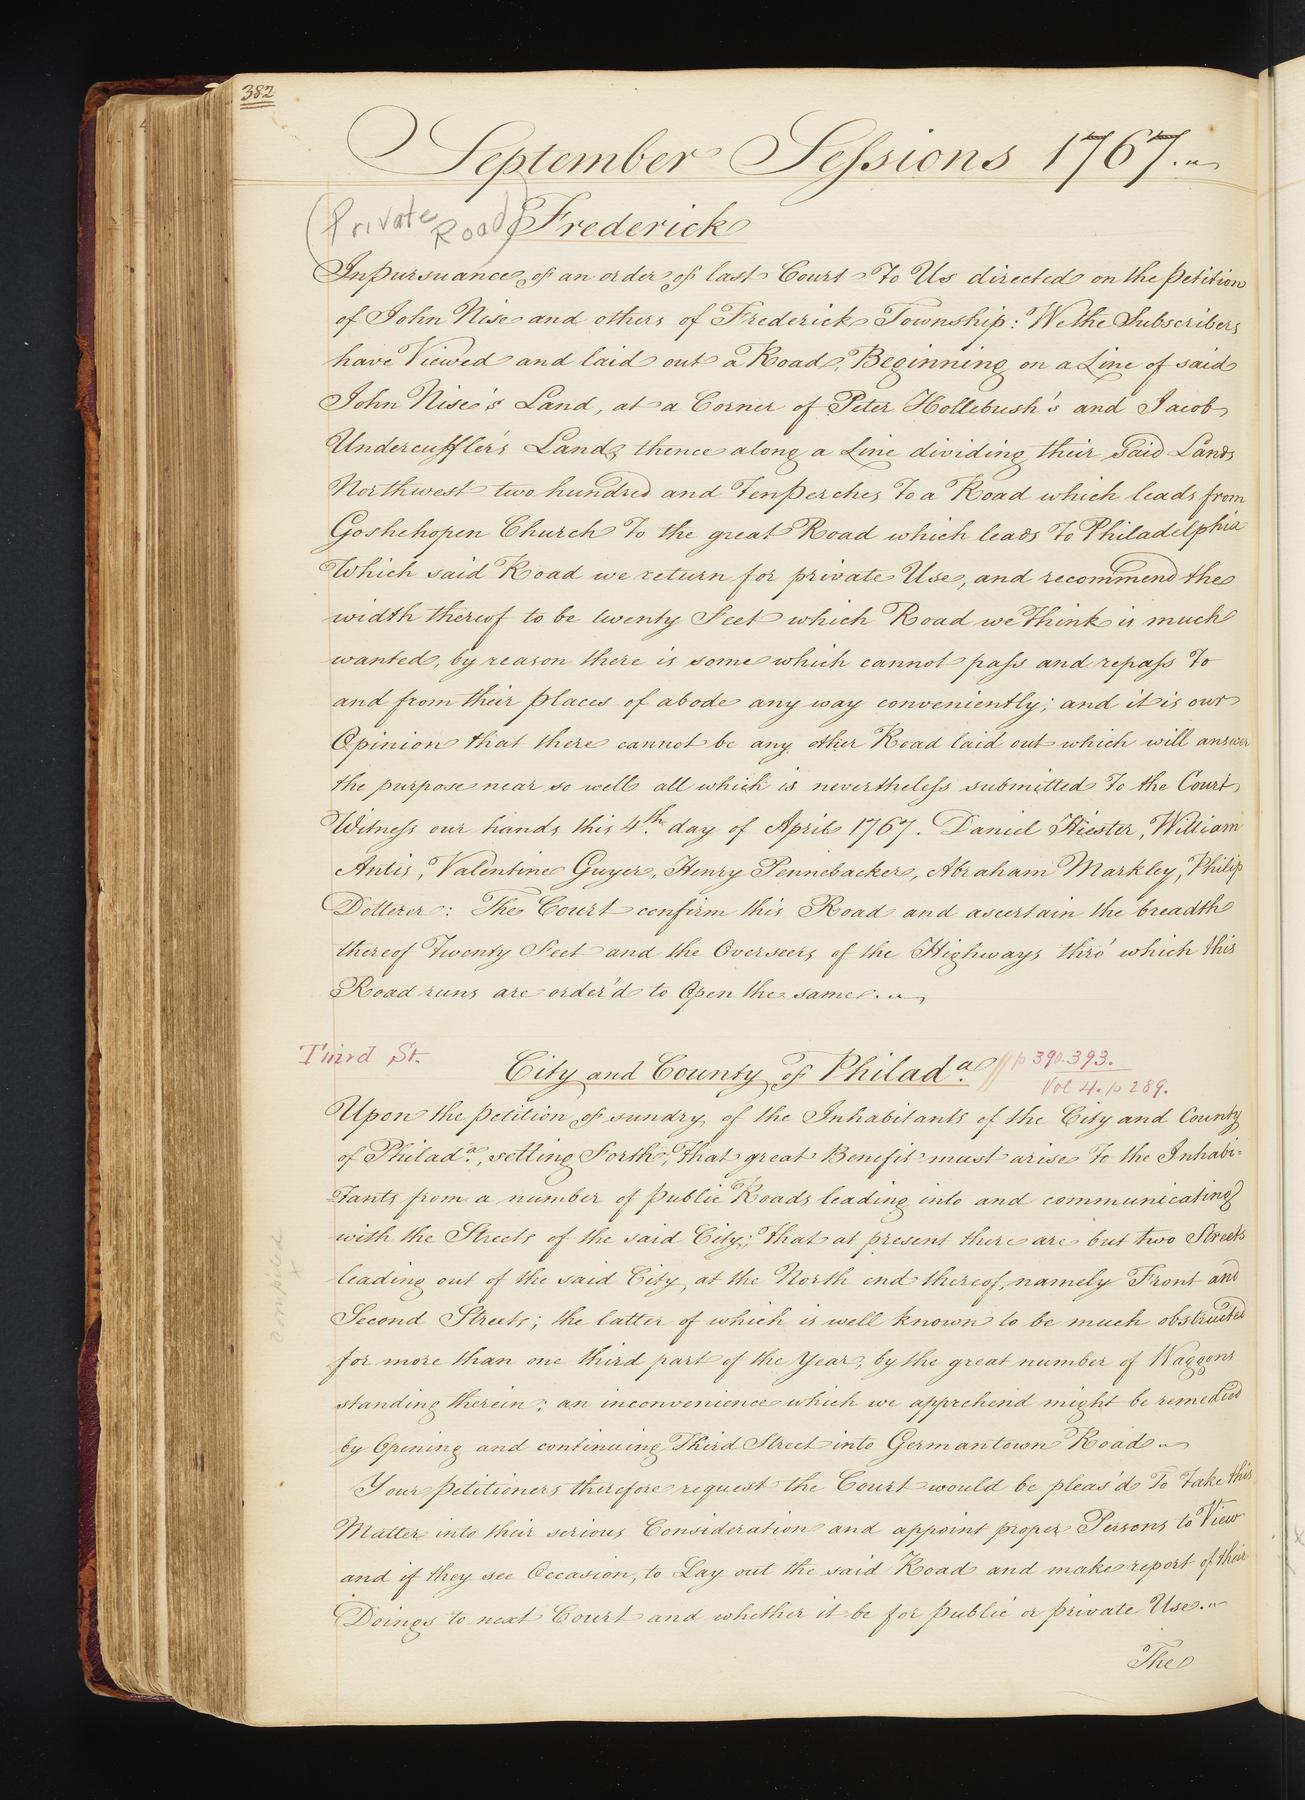 382
September Sessions 1767.
(Private Road)
Frederick
In pursuance of an order of last Court To Us directed on the petition
of John Nise and others of Frederick Township: We the Subscribers
have Viewed and laid out a Road, Beginning on a Line of said
John Nise's Land, at a Corner of Peter Hollebush's and Jacob
Undercuffler's Land, thence along a Line dividing their said Lands
Northwest two hundred and Ten Perches To a Road which leads from
Goshehopen Church To the great Road which leads To Philadelphia
Which said Road we return for private Use, and recommend the
width thereof to be twenty Feet which Road we Think is much
wanted, by reason there is some which cannot pass and repass To
and from their places of abode any way conveniently; and it is our
Opinion that there cannot be any other Road laid out which will answer
the purpose near so well all which is nevertheless submitted To the Court
Witness our hands this 4th. day of April 1767. Daniel Hiester, William
Antis, Valentine Guyer, Henry Pennebacker, Abraham Markley, Philip
Dotterer: The Court confirm this Road and ascertain the breadth
thereof Twenty Feet and the Overseers of the Highways thro' which this
Road runs are order'd to Open the same.
Third St.
City and County of Philada. // p 390-393.
Vol 4. p 289.
Upon the petition of sundry of the Inhabitants of the City and County
of Philada., setting Forth, That great Benefit must arise To the Inhabi-
Tants from a number of public Roads leading into and communicating
with the Streets of the said City; That at present there are but two Streets
leading out of the said City, at the North end thereof, namely Front and
Second Streets; the latter of which is well known to be much obstructed
for more than one third part of the Year, by the great number of Waggons
standing therein; an inconvenience which we apprehend might be remedied
by Opening and continuing Third Street into Germantown Road
Your petitioners therefore request the Court would be pleas'd To Take this
Matter into their serious Consideration and appoint proper Persons to View
and if they see Occasion, to Lay out the said Road and make report of their
Doings to next Court and whether it be for public or private Use.
The